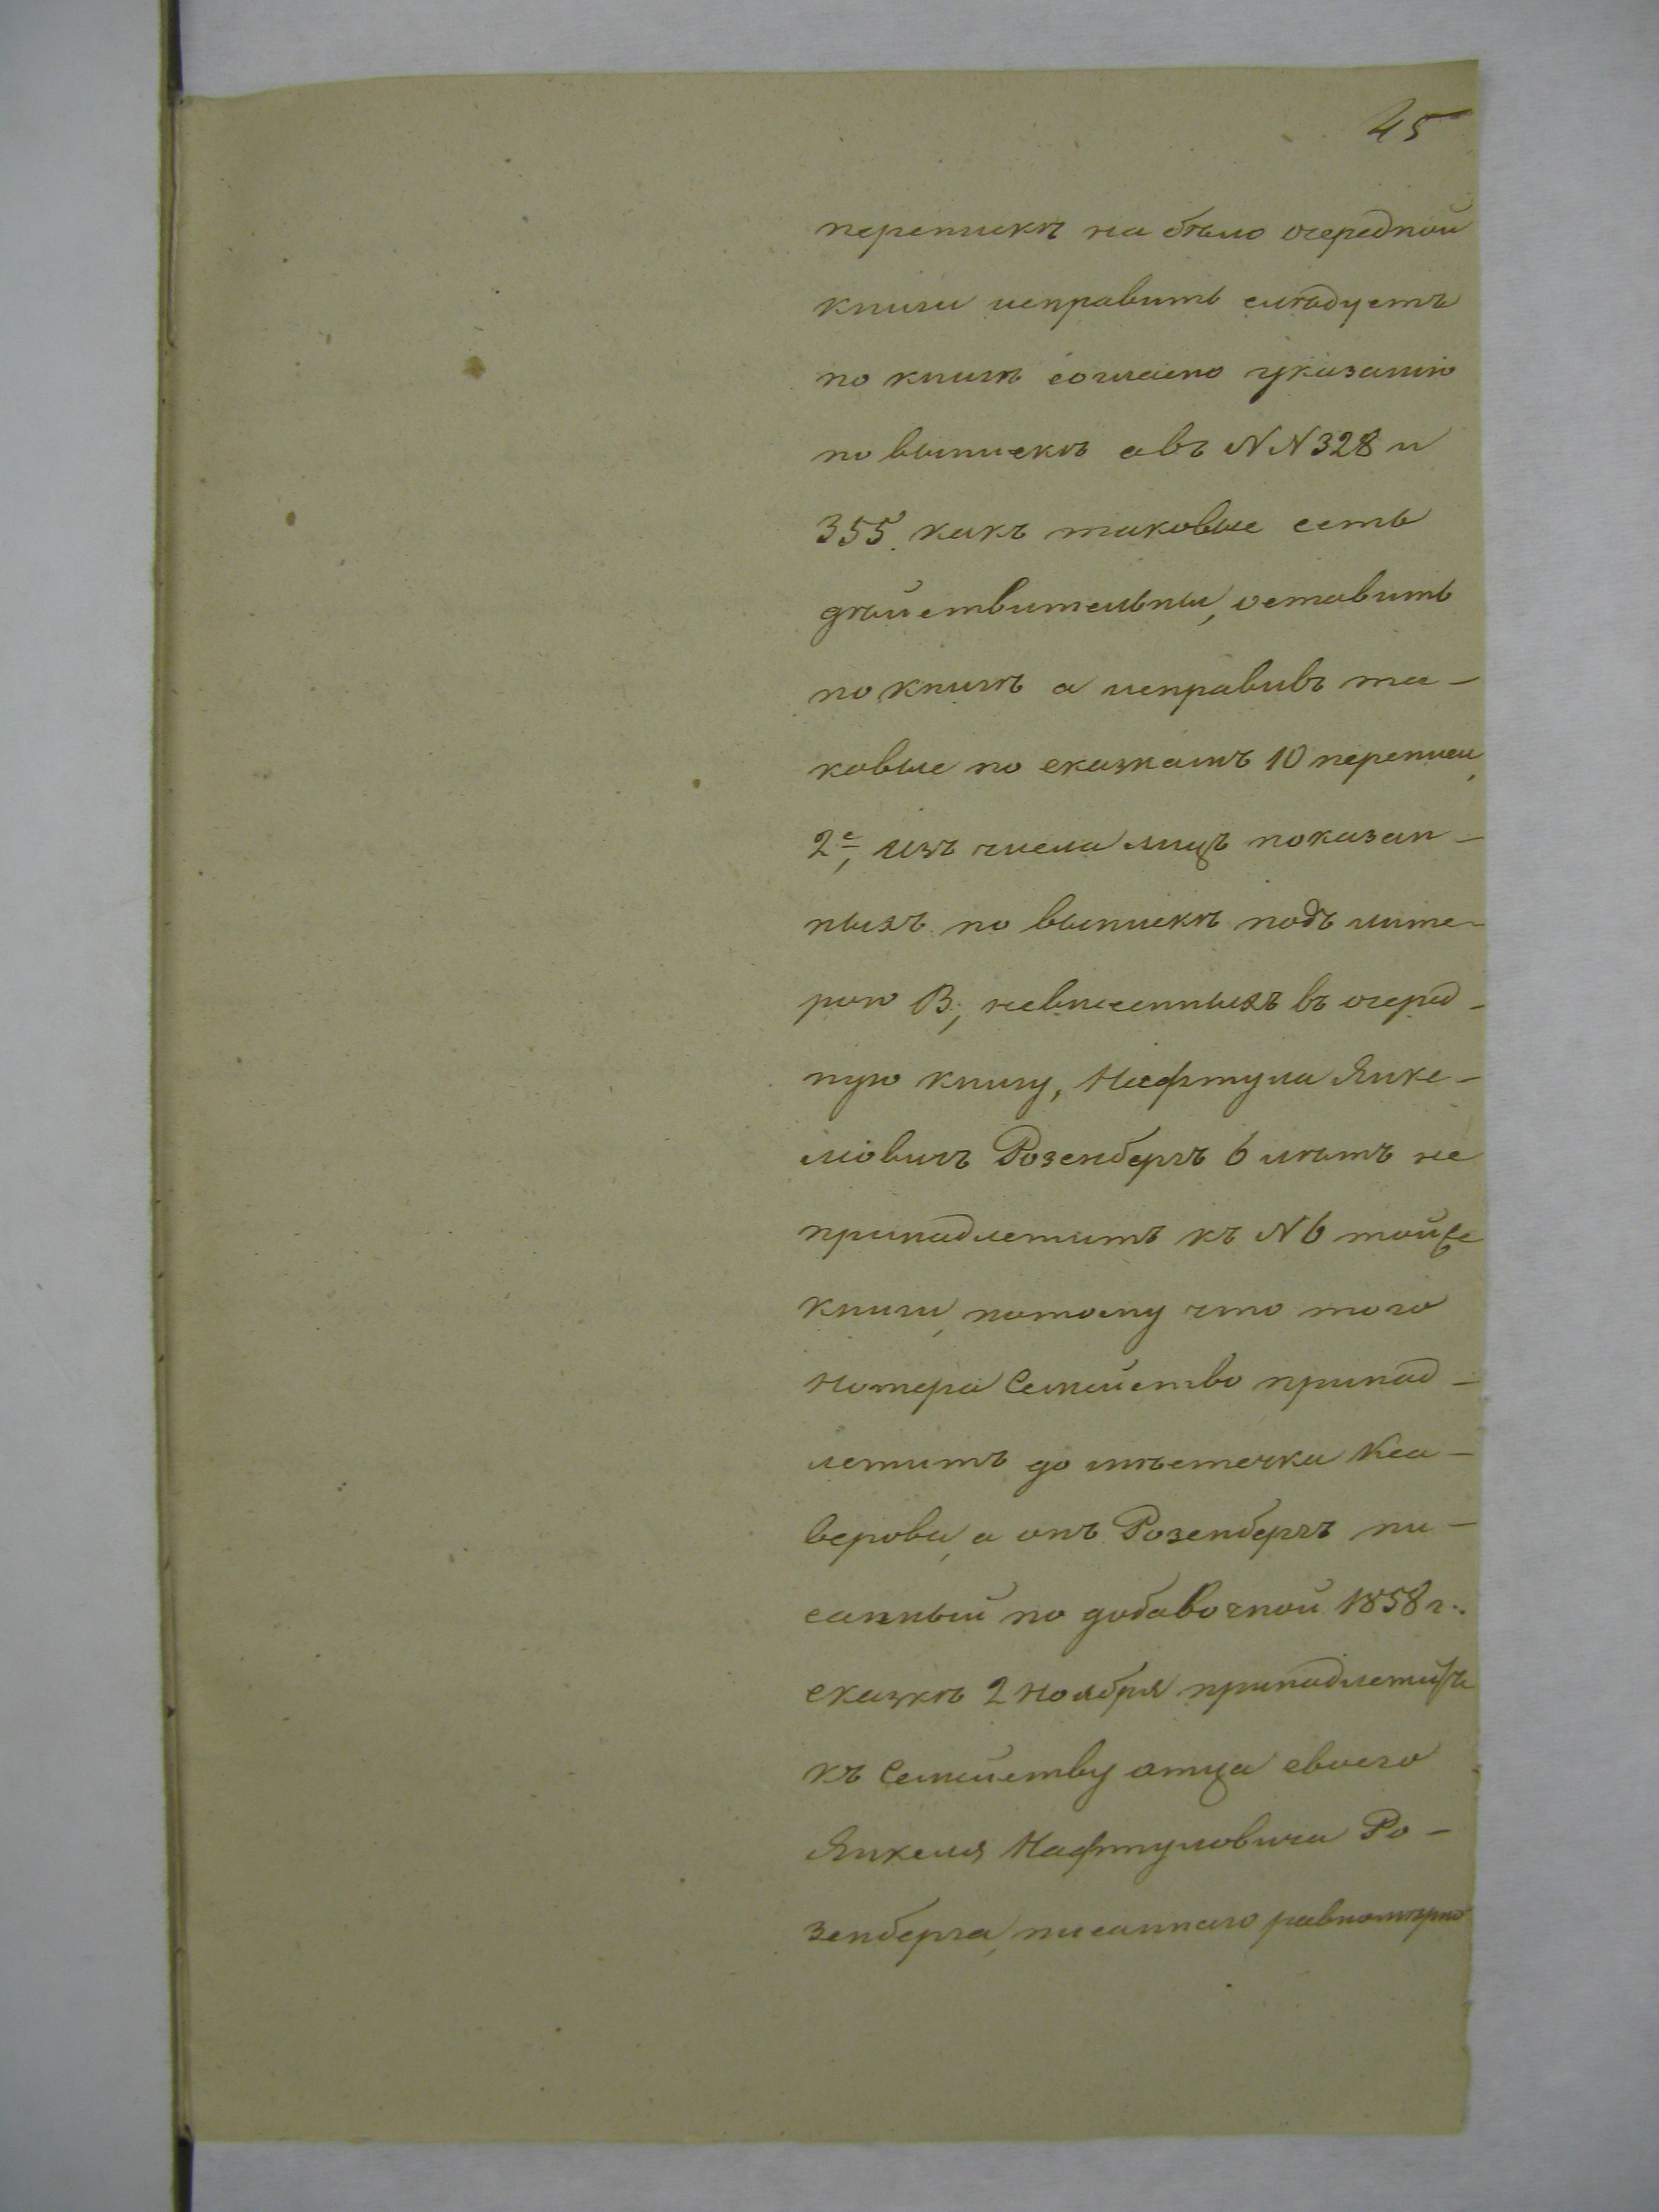 45
перепискѣ на бѣло очередной
книги исправить слѣдуетъ
по книгѣ согласно указанію
по выпискѣ а въ NN 328 и
355. какъ таковые есть
дѣйствительны, оставить
по книгѣ а исправивъ та-
ковые по сказкамъ 10 переписи,
2е, изъ числа лицъ показан-
ныхъ по выпискѣ подъ лите-
рою В, невнесенныхъ въ очеред-
ную книгу, Нафтула Янке-
ліовичъ Розенбергъ 6 лѣтъ не
принадлежитъ къ N 6 той же
книги, потому что того
номера Семейство принад-
лежитъ до мѣстечка
а онъ Розенбергъ пи-
санный по добавочной 1858 г.
сказкѣ 2 Ноября принадлежитъ
къ Семейству отца своего
Янкеля Нафтуловича Ро-
зенберга, писаннаго равномѣрно